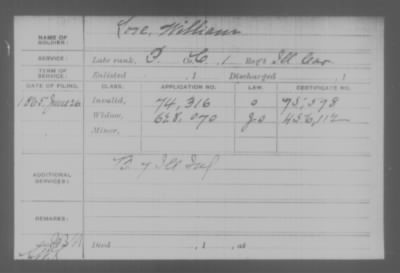 NAME OF SOLDIER: Cose, William
SERVICE: Late rank, P. Co. C, 1 Reg't Ill Cav
TERM OF SERVICE: Enlisted , 1 Discharged , 1
DATE OF FILING. CLASS. APPLICATION NO. LAW. CERTIFICATE NO.
1865 June 26 Invalid, 74,316 o 75,578
Widow, 628,070 456,112
Minor,
ADDITIONAL SERVICES: B 7 Ill Inf
REMARKS:
Died , 1 , at